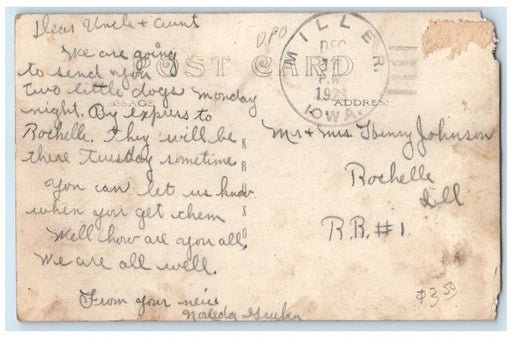 Dear Uncle & Aunt
We are going
to send you
two little dogs Monday
night. By express to
Rochelle. They will be
there Tuesday sometime
You can let us know
when you get them
Well how are you all,
We are all well.
From your neice
DPO
POST CARD
MILLER.
DEC
P.M.
IOWA.
ADDRESS
KRUXO
Mr & Mrs Henry Johnson
Rochelle
Ill
R.R. #1.
$3.50